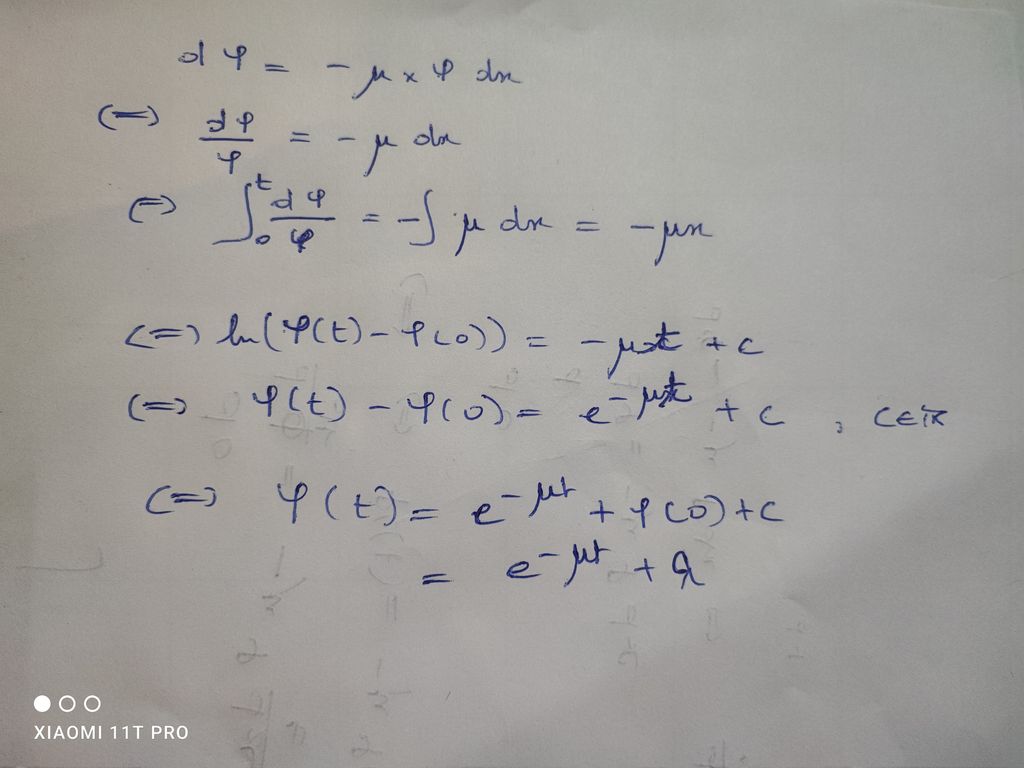 dφ = - μ × φ dx
(=) dφ/φ = - μ dx
(=) ∫₀ᵗ dφ/φ = -∫ μ dx = - μx
(=) ln(φ(t) - φ(0)) = - μt + c
(=) φ(t) - φ(0) = e^{-μt} + c , c∈ℝ
(=) φ(t) = e^{-μt} + φ(0) + c
= e^{-μt} +
XIAOMI 11T PRO